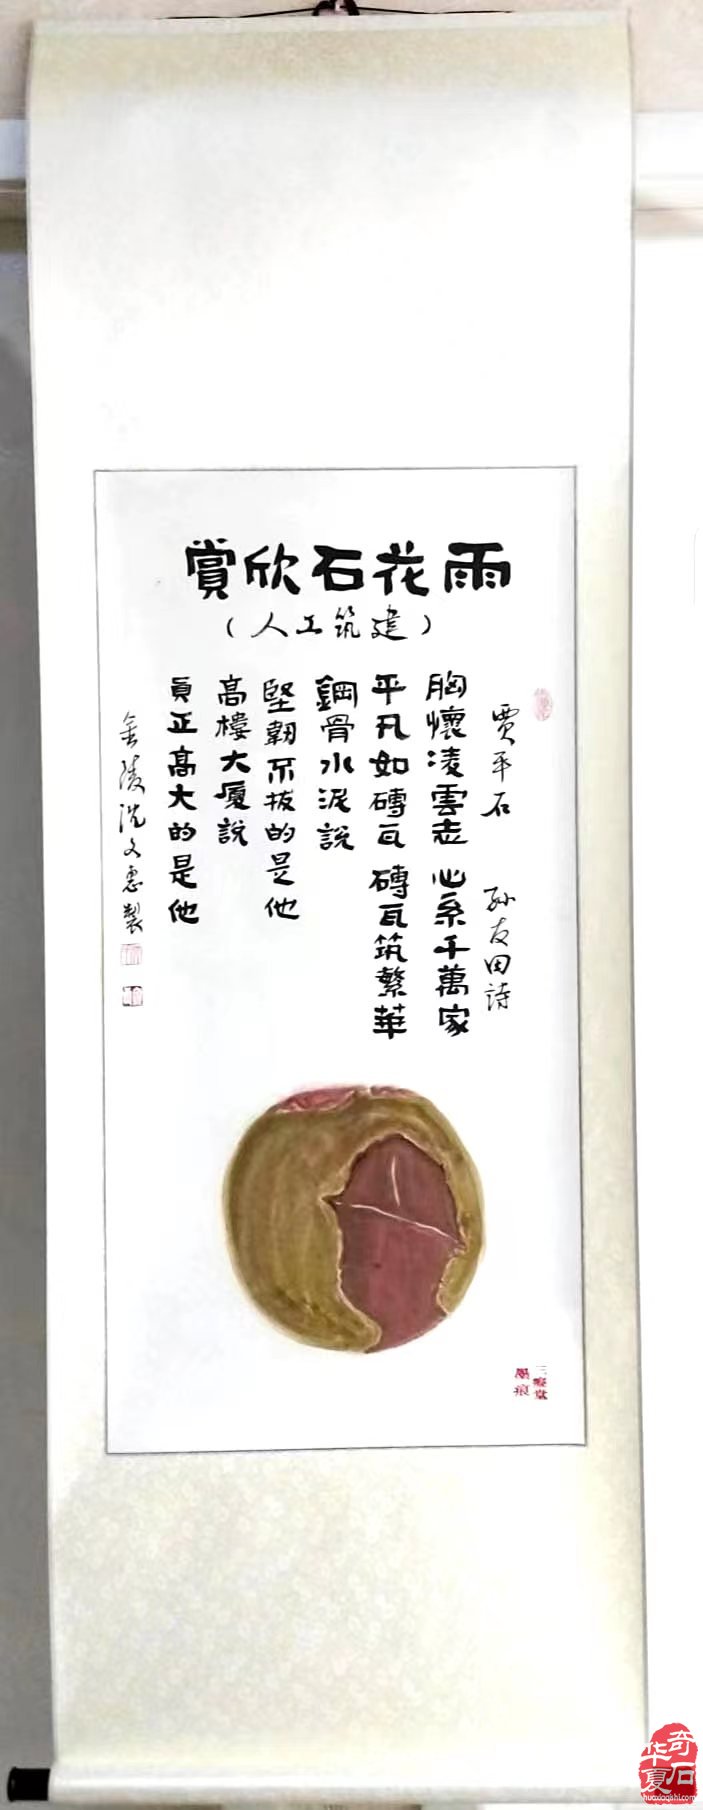 雨花石欣賞
（建筑工人）
賈平石　孙友田詩
胸懷凌雲志　心系千萬家
平凡如磚瓦　磚瓦筑繁華
鋼骨水泥說
堅韌不拔的是他
高樓大廈說
真正高大的是他
金陵沈文惠製
三癡堂
墨痕
华夏奇石
huaxiaqishi.com